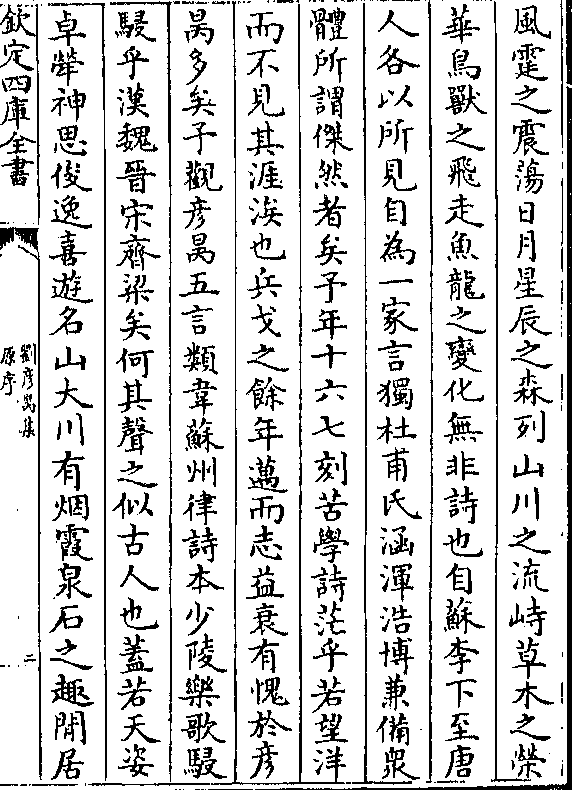 風霆之震蕩日月星辰之森列山川之流峙草木之榮
華鳥獸之飛走魚龍之變化無非詩也自蘇李下至唐
人各以所見自為一家言獨杜甫氏涵渾浩博兼備衆
體所謂傑然者矣予年十六七刻苦學詩茫乎若望洋
而不見其涯涘也兵戈之餘年邁而志益衰有愧於彦
昺多矣予觀彦昺五言類韋蘇州律詩本少陵樂歌駸
駸乎漢魏晉宋齊梁矣何其聲之似古人也蓋若天姿
卓犖神思俊逸喜遊名山大川有烟霞泉石之趣閒居
欽定四庫全書
劉彦昺集
原序
二